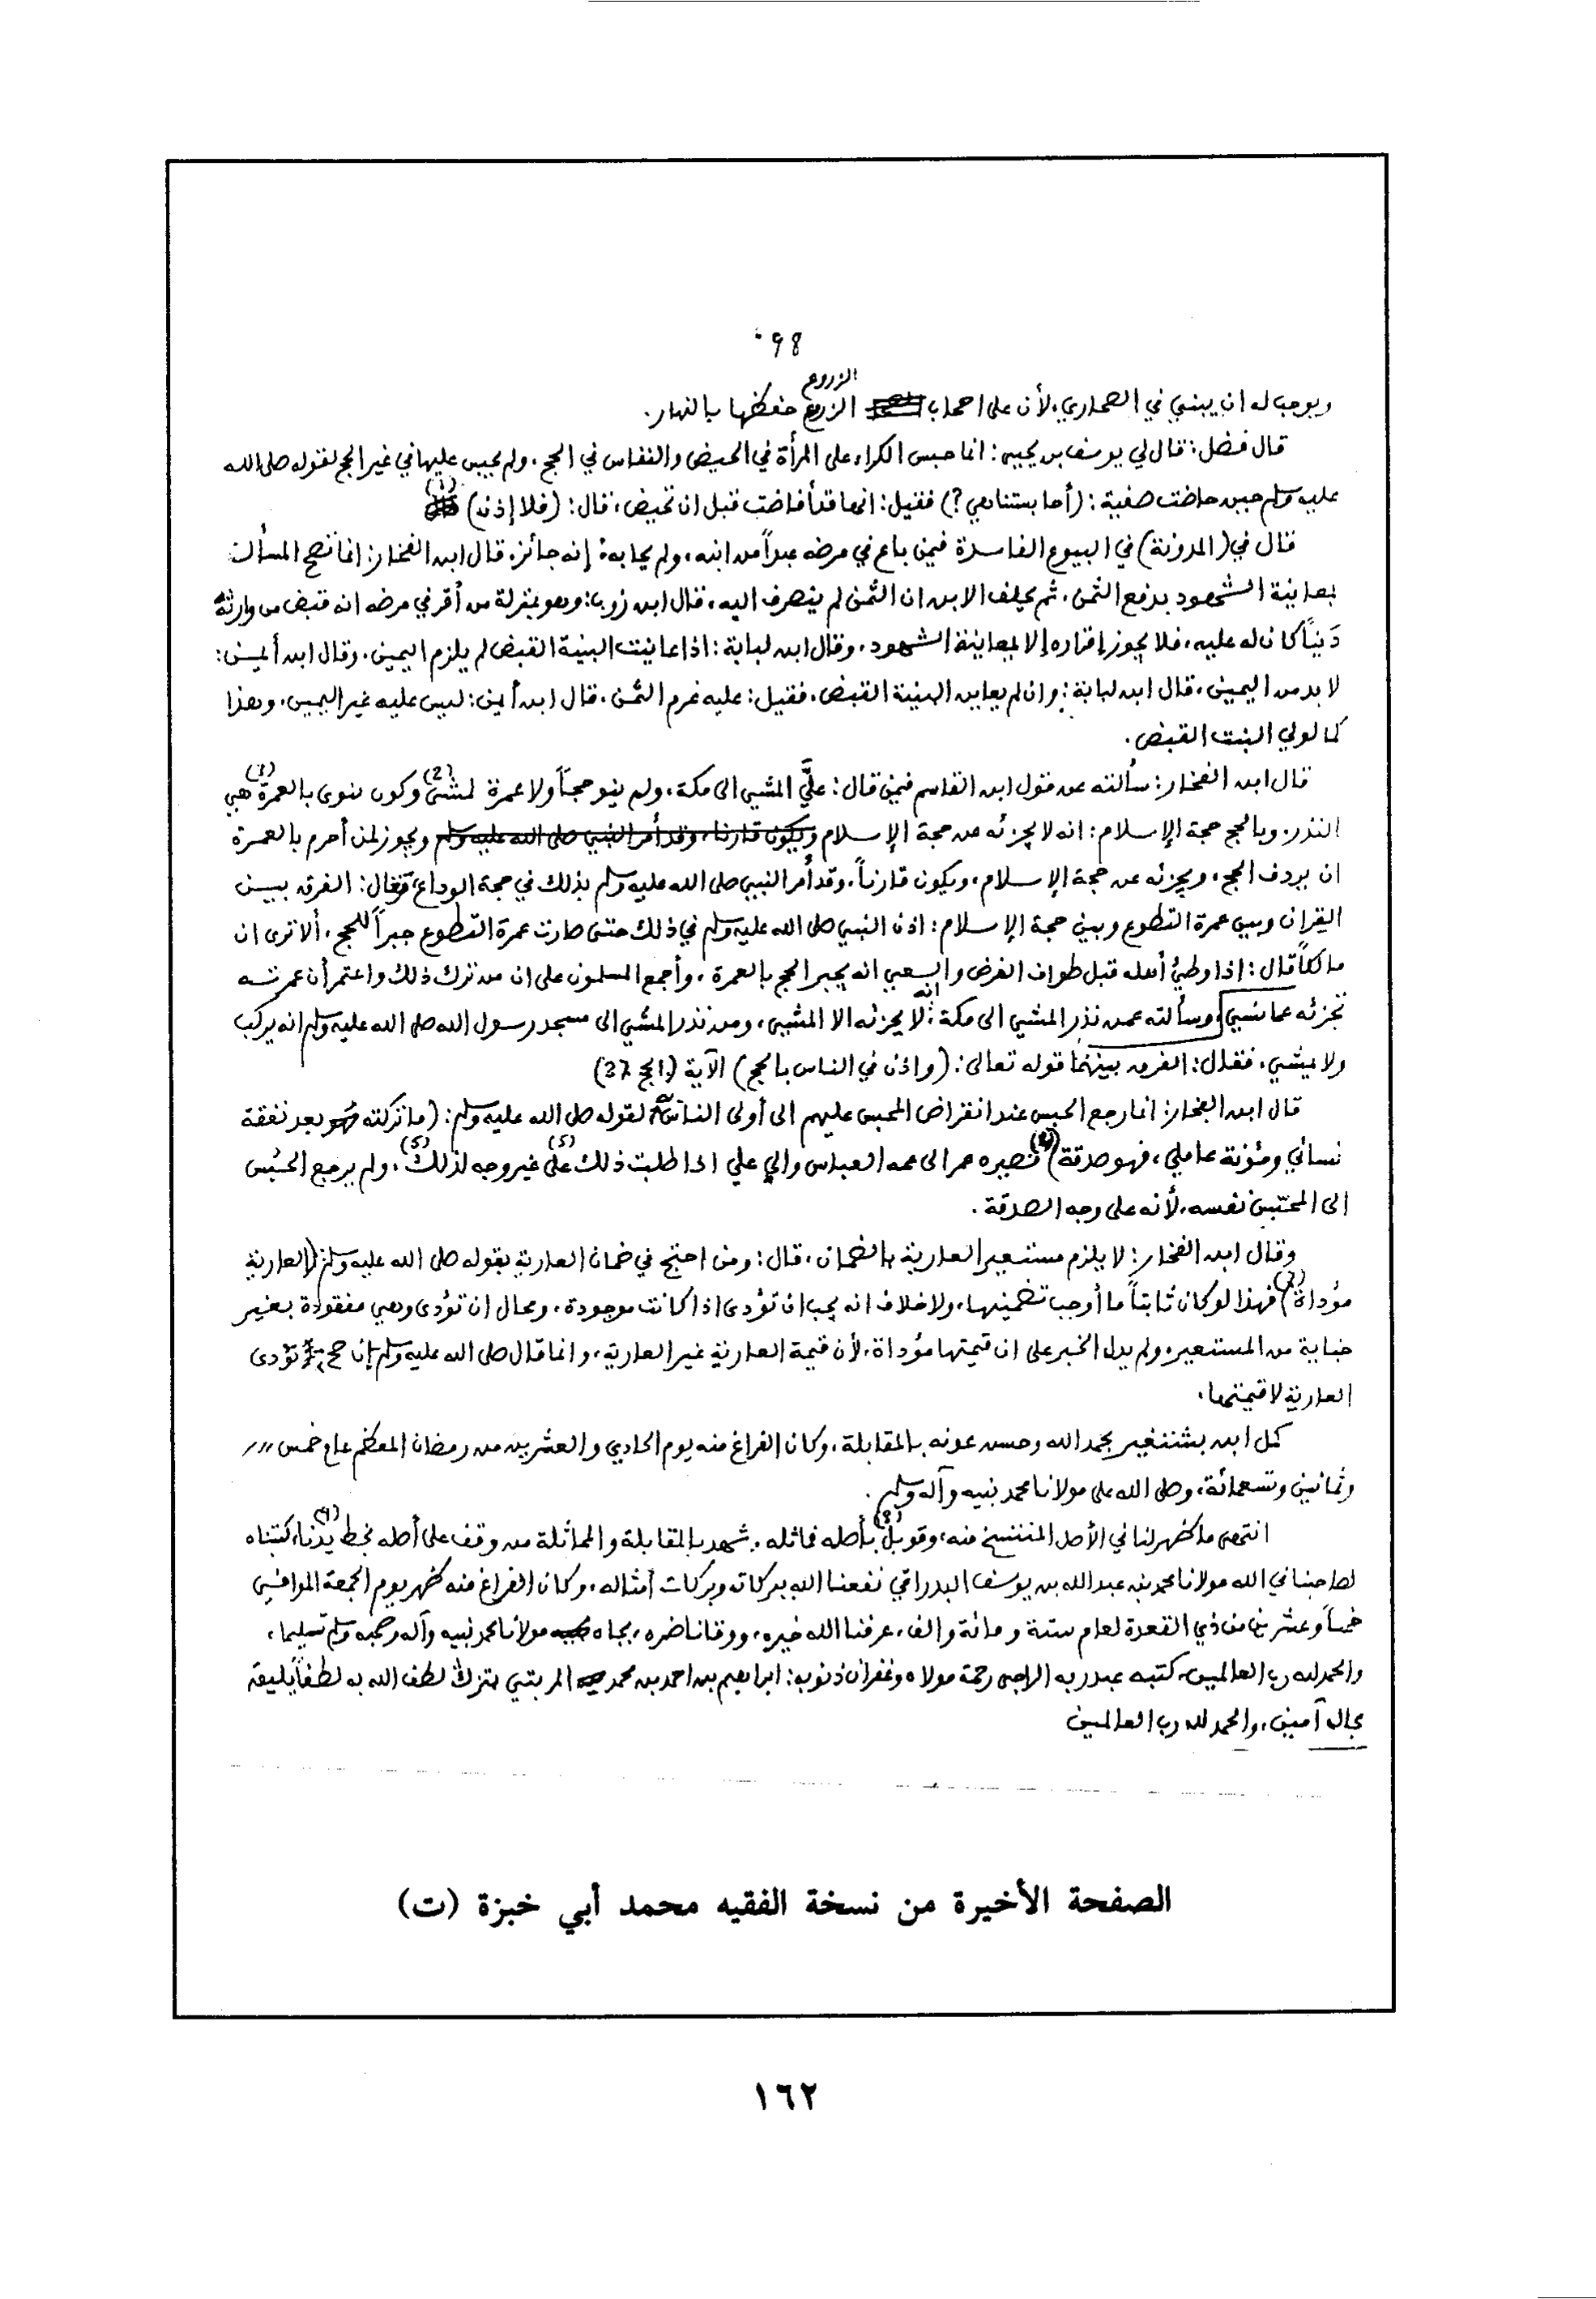 98
الزروع
ويوجب له ان يبني في الصحاري، لأن على اصحاب الزرع حفظها بالنهار.
قال فضل: قال لي يوسف بن يحيى: انما حبس الكراء على المرأة في الحيض والنفاس في الحج، ولم يحبس عليها في غير الحج لقوله صلى الله
عليه وسلم حين حاضت صفية: (أحابستنا هي؟) فقيل: انها قد أفاضت قبل ان تحيض، قال: (فلا إذن) (1)
قال في (المدونة) في البيوع الفاسدة فيمن باع في مرضه عبداً من ابنه، ولم يحابه: إنه جائز. قال ابن الفخار: انما تصح المسألة
بمعاينة الشهود بدفع الثمن، ثم يحلف الابن ان الثمن لم ينصرف اليه، قال ابن زرب: وهو بمنزلة من أقر في مرضه انه قبض من وارثه
دَيناً كان له عليه، فلا يجوز إقراره إلا بمعاينة الشهود، وقال ابن لبابة: اذا عاينت البينة القبض لم يلزم اليمين. وقال ابن أيمن:
لا بد من اليمين، قال ابن لبابة: وان لم يعاين البينة القبض، فقيل: عليه غرم الثمن، قال ابن أيمن: ليس عليه غير اليمين، وهذا
القبض.
قال ابن الفخار: سألته عن قول ابن القاسم فيمن قال: عليَّ المشي الى مكة، ولم ينو حجاً ولا عمرة (2) نوى بالعمرة (3) هي
النذر، وبالحج حجة الإسلام: انه لا يجزئه عن حجة الإسلام ويكون قارنا، وقد أمر النبي صلى الله عليه وسلم ويجوز لمن أحرم بالعمرة
ان يردف الحج، ويجزئه عن حجة الإسلام، ويكون قارناً، وقد أمر النبي صلى الله عليه وسلم بذلك في حجة الوداع، فقال: الفرق بين
القران وبين عمرة التطوع وبين حجة الإسلام: اذن النبي صلى الله عليه وسلم في ذلك حتى صارت عمرة التطوع جبراً للحج، ألا ترى ان
مالكاً قال: إذا وطئ أهله قبل طواف الفرض والسعي انه يجبر الحج بالعمرة، وأجمع المسلمون على ان من ترك ذلك واعتمر أن عمرته
تجزئه عما نسي، وسألته عمن نذر المشي الى مكة: انه لا يجزئه الا المشي، ومن نذر المشي الى مسجد رسول الله صلى الله عليه وسلم انه يركب
ولا يمشي، فقال: الفرق بينهما قوله تعالى: (واذن في الناس بالحج) الآية (الحج 27)
قال ابن الفخار: انما رجع الحبس عند انقراض المحبس عليهم الى أولى الناس لقوله صلى الله عليه وسلم: (ما تركته بعد نفقة
نسائي ومؤنة عاملي، فهو صدقة) (4) فصيره عمر الى عمه العباس والى علي اذا طلبت ذلك على (5) غير وجه لذلك (5)، ولم يرجع الحبس
الى المحتبس نفسه، لأنه على وجه الصدقة.
وقال ابن الفخار: لا يلزم مستعير العارية بالضمان، قال: ومن احتج في ضمان العارية بقوله صلى الله عليه وسلم: (العارية
مؤداة) فهذا لو كان ثابتاً ما أوجب تضمينها، ولا خلاف انه يجب ان تؤدى اذا كانت موجودة، ومحال ان تؤدى وهي مفقودة بغير
جناية من المستعير، ولم يدل الخبر على ان قيمتها مؤداة، لأن قيمة العارية غير العارية، وانما قال صلى الله عليه وسلم إن صح تؤدى
العارية لا قيمتها.
كمل ابن بشتغير بحمد الله وحسن عونه بالمقابلة، وكان الفراغ منه يوم الحادي والعشرين من رمضان المعظم عام خمس
وثمانين وتسعمائة، وصلى الله على مولانا محمد نبيه وآله وسلم.
انتهى ما ظهر لنا في الأصل المنتسخ منه، وقوبل (8) بأصله فماثله. شهد بالمقابلة والمماثلة من وقف على أصله بخط يدنا، (9) كتبناه
لصاحبنا في الله مولانا محمد بن عبد الله بن يوسف البدراقي نفعنا الله ببركاته وبركات أمثاله، وكان الفراغ منه ظهر يوم الجمعة الموافي
خمساً وعشرين من ذي القعدة لعام ستة ومائة والف، عرفنا الله خيره، ووقانا ضره، بجاه مولانا محمد نبيه وآله وصحبه وسلم تسليما،
والحمد لله رب العالمين، كتبه عبد ربه الراجي رحمة مولاه وغفران ذنوبه: ابراهيم بن احمد بن محمد لطف الله به لطفاً يليق
بحاله آمين، والحمد لله رب العالمين
الصفحة الأخيرة من نسخة الفقيه محمد أبي خبزة (ت)
١٦٢